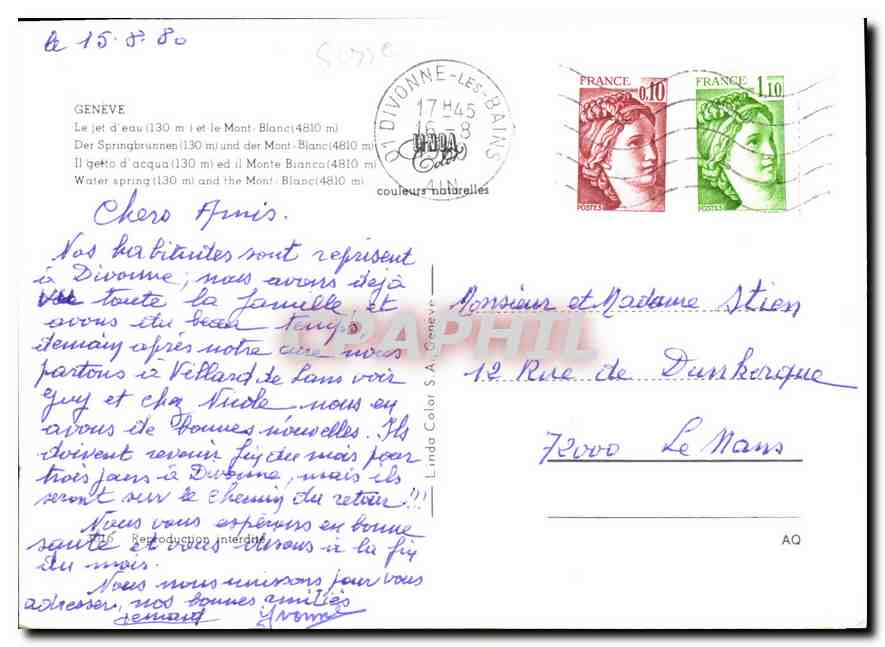 le 15.8.80
Suisse
GENÈVE
Le jet d'eau (130 m) et le Mont-Blanc (4810 m)
Der Springbrunnen (130 m) und der Mont-Blanc (4810 m)
Il getto d'acqua (130 m) ed il Monte Bianco (4810 m)
Water spring (130 m) and the Mont-Blanc (4810 m)
01 DIVONNE-LES-BAINS
17H45
16-8
AIN
LINDA
Color
couleurs naturelles
FRANCE
0,10
POSTES
FRANCE
1,10
POSTES
Chers Amis.
Nos habitudes sont reprisent
à Divonne, nous avons déjà
vu toute la famille et
avons du beau temps,
demain après notre cure nous
partons à Villard de Lans voir
Guy et chez Nicole nous en
avons de bonnes nouvelles. Ils
doivent revenir fin du mois pour
trois jours à Divonne, mais ils
seront sur le chemin du retour !!!
Nous vous espérons en bonne
santé et vous disons à la fin
du mois.
Nous nous unissons pour vous
adresser, nos bonnes amitiés
Yvonne
Reproduction interdite
Linda Color S.A. Genève
PAPHIL
Monsieur et Madame Stien
12 Rue de Dunkerque
72000 Le Mans
AQ